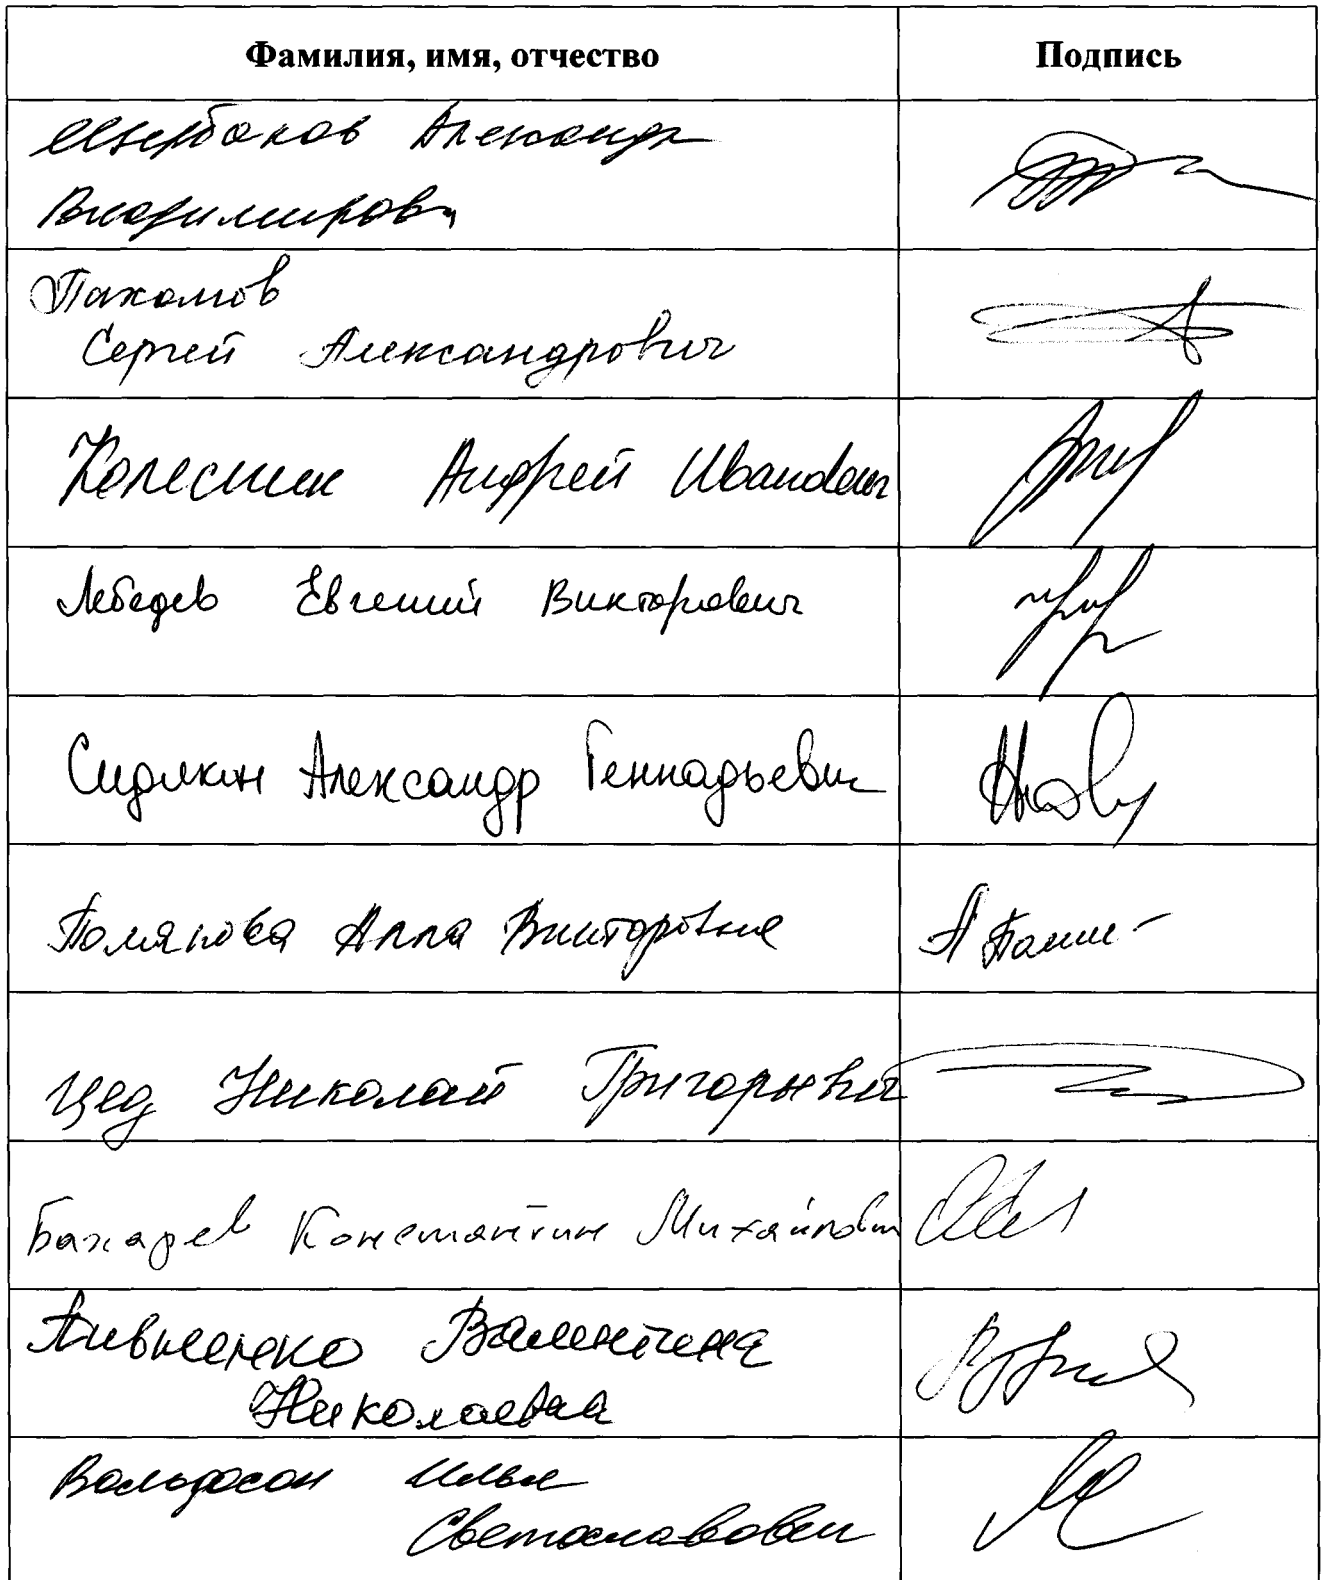 Фамилия, имя, отчество Подпись
Щербаков Александр
Владимирович
Пахомов
Сергей Александрович
Колесник Андрей Иванович
Лебедев Евгений Викторович
Сидякин Александр Геннадьевич
Полякова Алла Викторовна
Цед Николай Григорьевич
Бахарев Константин Михайлович
Пивненко Валентина
Николаевна
Вольфсон Илья
Светославович